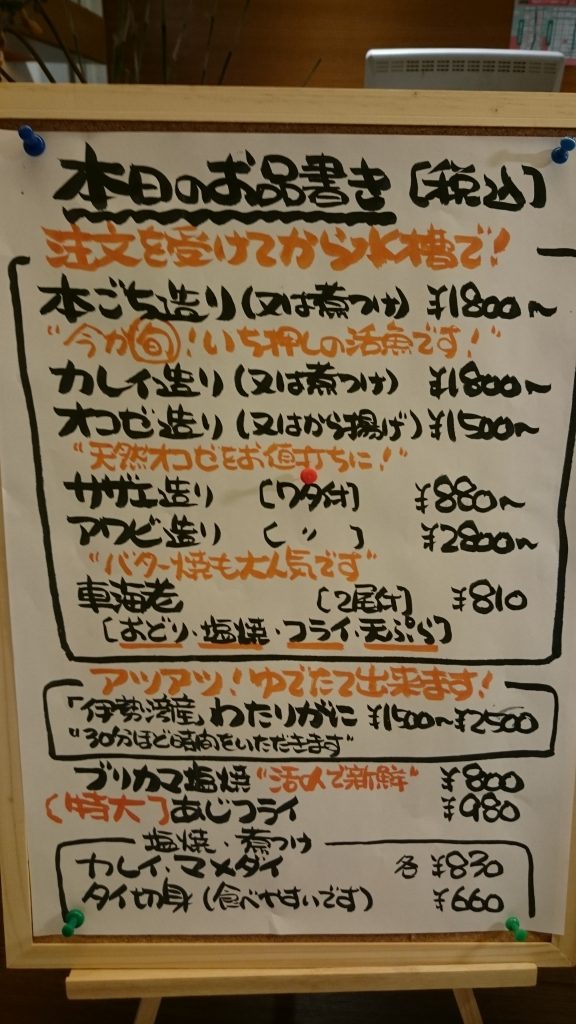 本日のお品書き〔税込〕
注文を受けてから水槽で!
本ごち造り(又は煮つけ) ¥1800〜
"今が旬!いち押しの活魚です!"
カレイ造り(又は煮つけ) ¥1800〜
オコゼ造り(又はから揚げ) ¥1500〜
"天然オコゼをお値打ちに!"
サザエ造り 〔ワタ付〕 ¥880〜
アワビ造り 〔 〃 〕 ¥2800〜
"バター焼も大人気です"
車海老 〔2尾付〕 ¥810
〔おどり・塩焼・フライ・天ぷら〕
アツアツ!ゆでたて出来ます!
「伊勢湾産」わたりがに ¥1500〜¥2500
"30分ほど時間をいただきます"
ブリカマ塩焼"活〆で新鮮" ¥800
〔特大〕あじフライ ¥980
塩焼・煮つけ
カレイ・マメダイ 各 ¥830
タイ切身(食べやすいです) ¥660